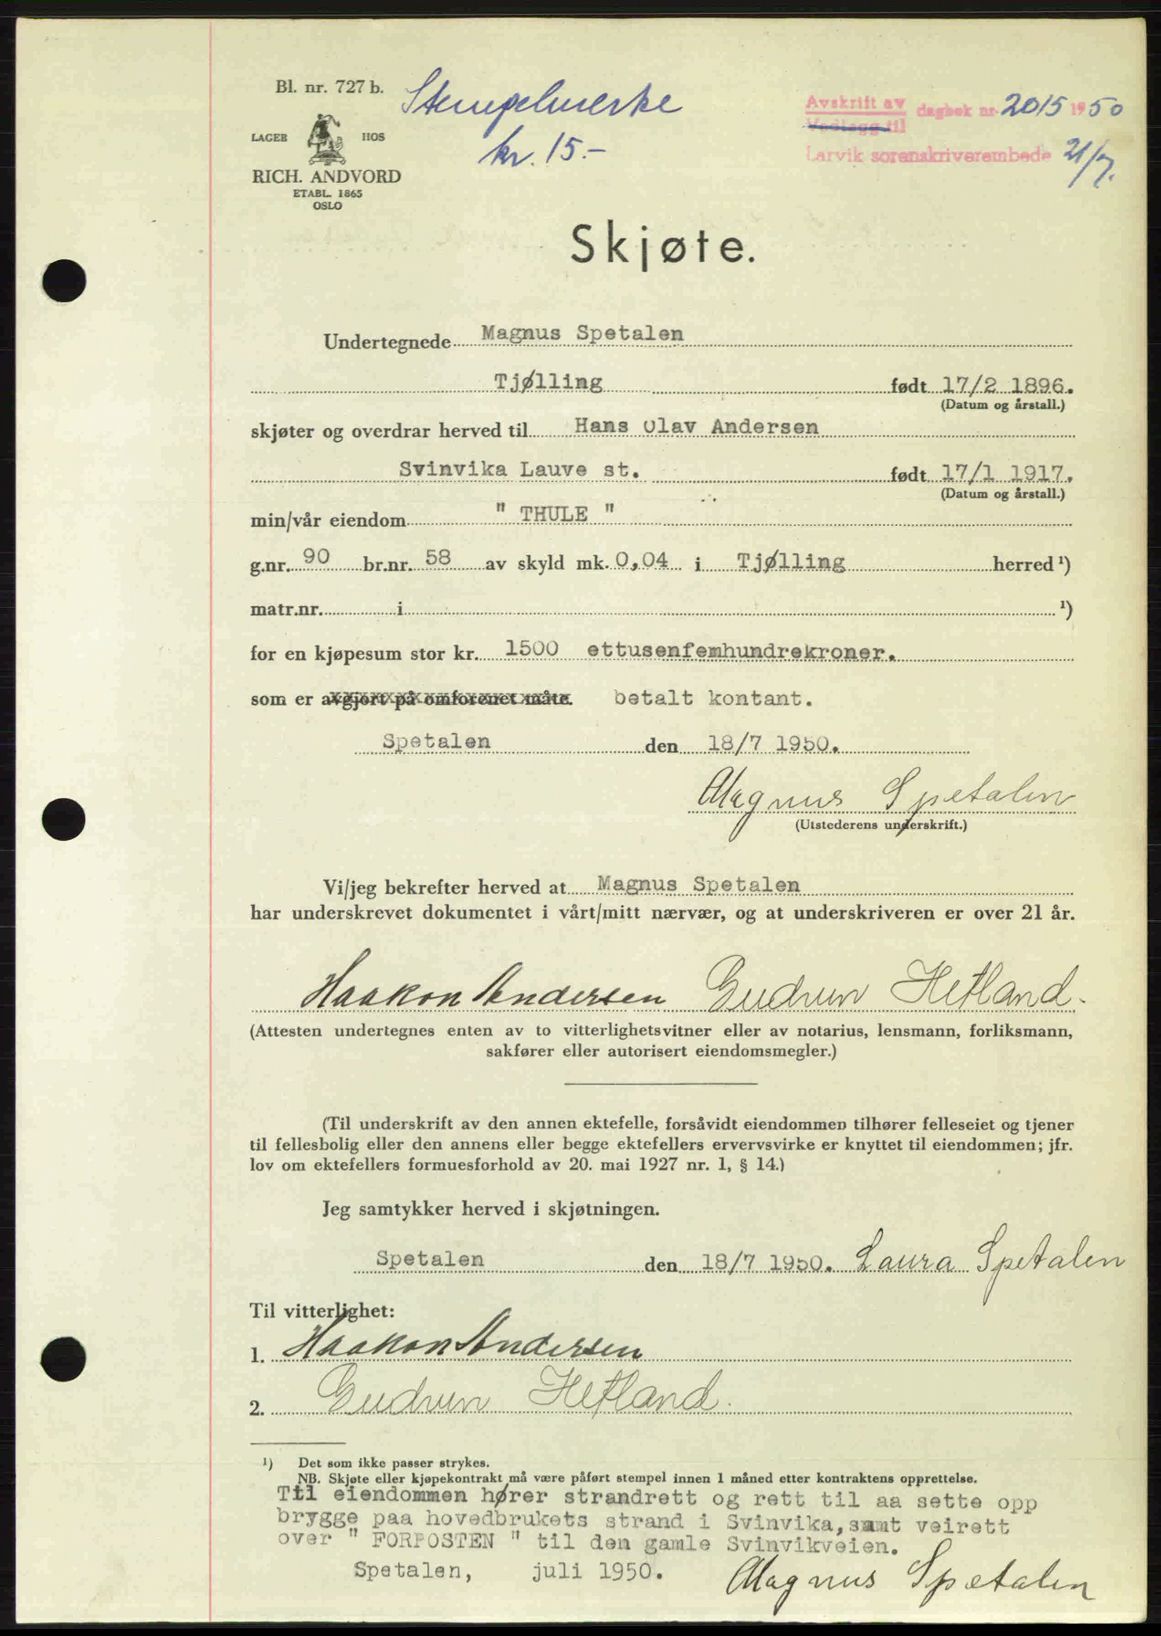 Bl. nr. 727 b.
Stempelmerke
kr. 15.-
Avskrift av
Vedlegg til
dagbok nr. 2015 1950
Larvik sorenskriverembede 21/7.
LAGER HOS
RICH. ANDVORD
ETABL. 1865
OSLO
Skjøte.
Undertegnede Magnus Spetalen
Tjølling født 17/2 1896.
(Datum og årstall.)
skjøter og overdrar herved til Hans Olav Andersen
Svinvika Lauve st. født 17/1 1917.
(Datum og årstall.)
min/vår eiendom " THULE "
g.nr. 90 br.nr. 58 av skyld mk. 0,04 i Tjølling herred ¹)
matr.nr. i ¹)
for en kjøpesum stor kr. 1500 ettusenfemhundrekroner.
som er avgjort på omforenet måte. betalt kontant.
Spetalen den 18/7 1950.
Magnus Spetalen
(Utstederens underskrift.)
Vi/jeg bekrefter herved at Magnus Spetalen
har underskrevet dokumentet i vårt/mitt nærvær, og at underskriveren er over 21 år.
Haakon Andersen Gudrun Hetland.
(Attesten undertegnes enten av to vitterlighetsvitner eller av notarius, lensmann, forliksmann,
sakfører eller autorisert eiendomsmegler.)
(Til underskrift av den annen ektefelle, forsåvidt eiendommen tilhører felleseiet og tjener
til fellesbolig eller den annens eller begge ektefellers ervervsvirke er knyttet til eiendommen; jfr.
lov om ektefellers formuesforhold av 20. mai 1927 nr. 1, § 14.)
Jeg samtykker herved i skjøtningen.
Spetalen den 18/7 1950. Laura Spetalen
Til vitterlighet:
1. Haakon Andersen
2. Gudrun Hetland.
¹) Det som ikke passer strykes.
NB. Skjøte eller kjøpekontrakt må være påført stempel innen 1 måned etter kontraktens opprettelse.
Til eiendommen hører strandrett og rett til aa sette opp
brygge paa hovedbrukets strand i Svinvika, samt veirett
over " FORPOSTEN " til den gamle Svinvikveien.
Spetalen, juli 1950. Magnus Spetalen